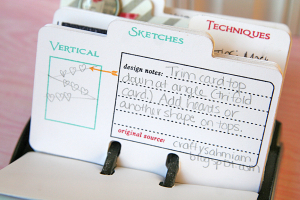 TECHNIQUES
SKETCHES
VERTICAL
design notes: Trim card top
down at angle (on fold
card). Add hearts or
another shape on tops.
original source: craftysahmiam
blogspot.com